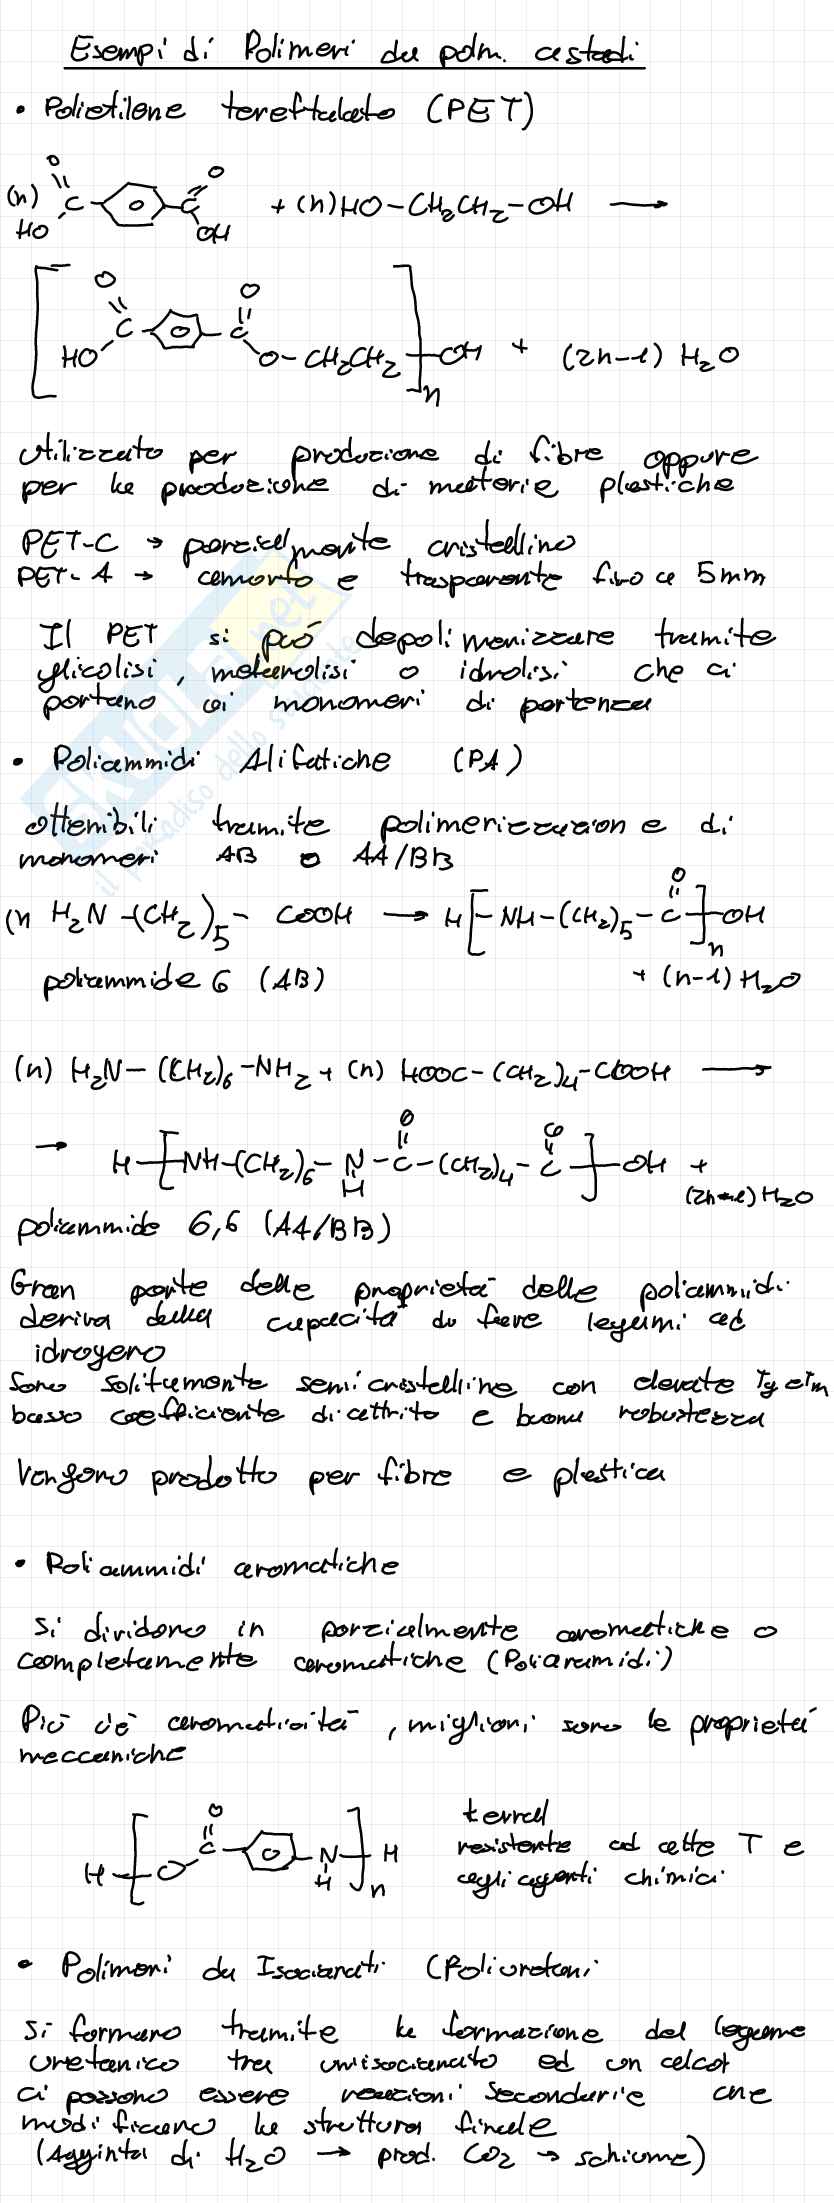 Esempi di Polimeri da polim. a stadi
• Polietilene tereftalato (PET)
(n) HO O C C O OH + (n) HO-CH2CH2-OH →
[ HO O C C O O-CH2CH2 ]n OH + (2n-1) H2O
utilizzato per produzione di fibre oppure
per la produzione di materie plastiche
PET-C → parzialmente cristallino
PET-A → amorfo e trasparente fino a 5mm
Il PET si può depolimerizzare tramite
glicolisi, metanolisi o idrolisi che ci
portano ai monomeri di partenza
• Poliammidi Alifatiche (PA)
ottenibili tramite polimerizzazione di
monomeri AB o AA/BB
(n H2N-(CH2)5-COOH → H[-NH-(CH2)5-C(=O)]n-OH
poliammide 6 (AB) + (n-1) H2O
(n) H2N-(CH2)6-NH2 + (n) HOOC-(CH2)4-COOH →
→ H-[NH-(CH2)6-NH-C(=O)-(CH2)4-C(=O)]-OH + (2n-1) H2O
poliammide 6,6 (AA/BB)
Gran parte delle proprietà delle poliammidi
deriva dalla capacità di fare legami ad
idrogeno
Sono solitamente semicristalline con elevate Tg e Tm
basso coefficiente di attrito e buona robustezza
Vengono prodotto per fibre e plastica
• Poliammidi aromatiche
Si dividono in parzialmente aromatiche o
completamente aromatiche (Poliaramidi)
Più c'è aromaticità, migliori sono le proprietà
meccaniche
H [ O C O N H ]n H
resistente ad alte T e
agli agenti chimici
• Polimeri da Isocianati (Poliuretani
Si formano tramite la formazione del legame
uretanico tra un isocianato ed un alcol
ci possono essere reazioni secondarie che
modificano la struttura finale
(Aggiunta di H2O → prod. CO2 → schiume)
SKUOLA.net
il paradiso dello studente